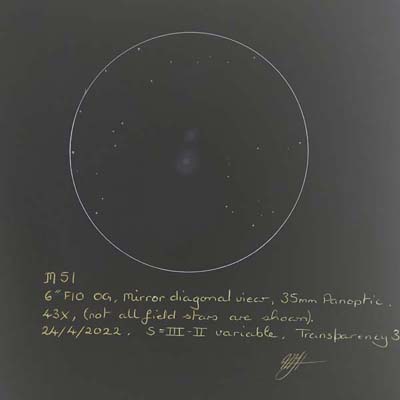 M51
6" F10 OG, Mirror diagonal view, 35mm Panoptic.
43x, (not all field stars are shown).
24/4/2022. S=III-II variable, Transparency 3